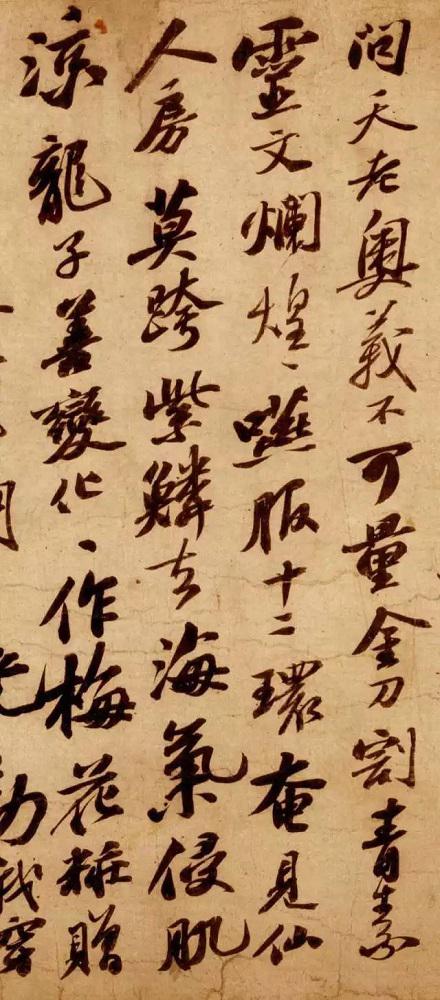 問天老奧義不可量金刀割青素
靈文爛煌、嚥服十二環奄見仙
人房莫跨紫鱗去海氣侵肌
涼龍子善變化、作梅花粧贈
我穿